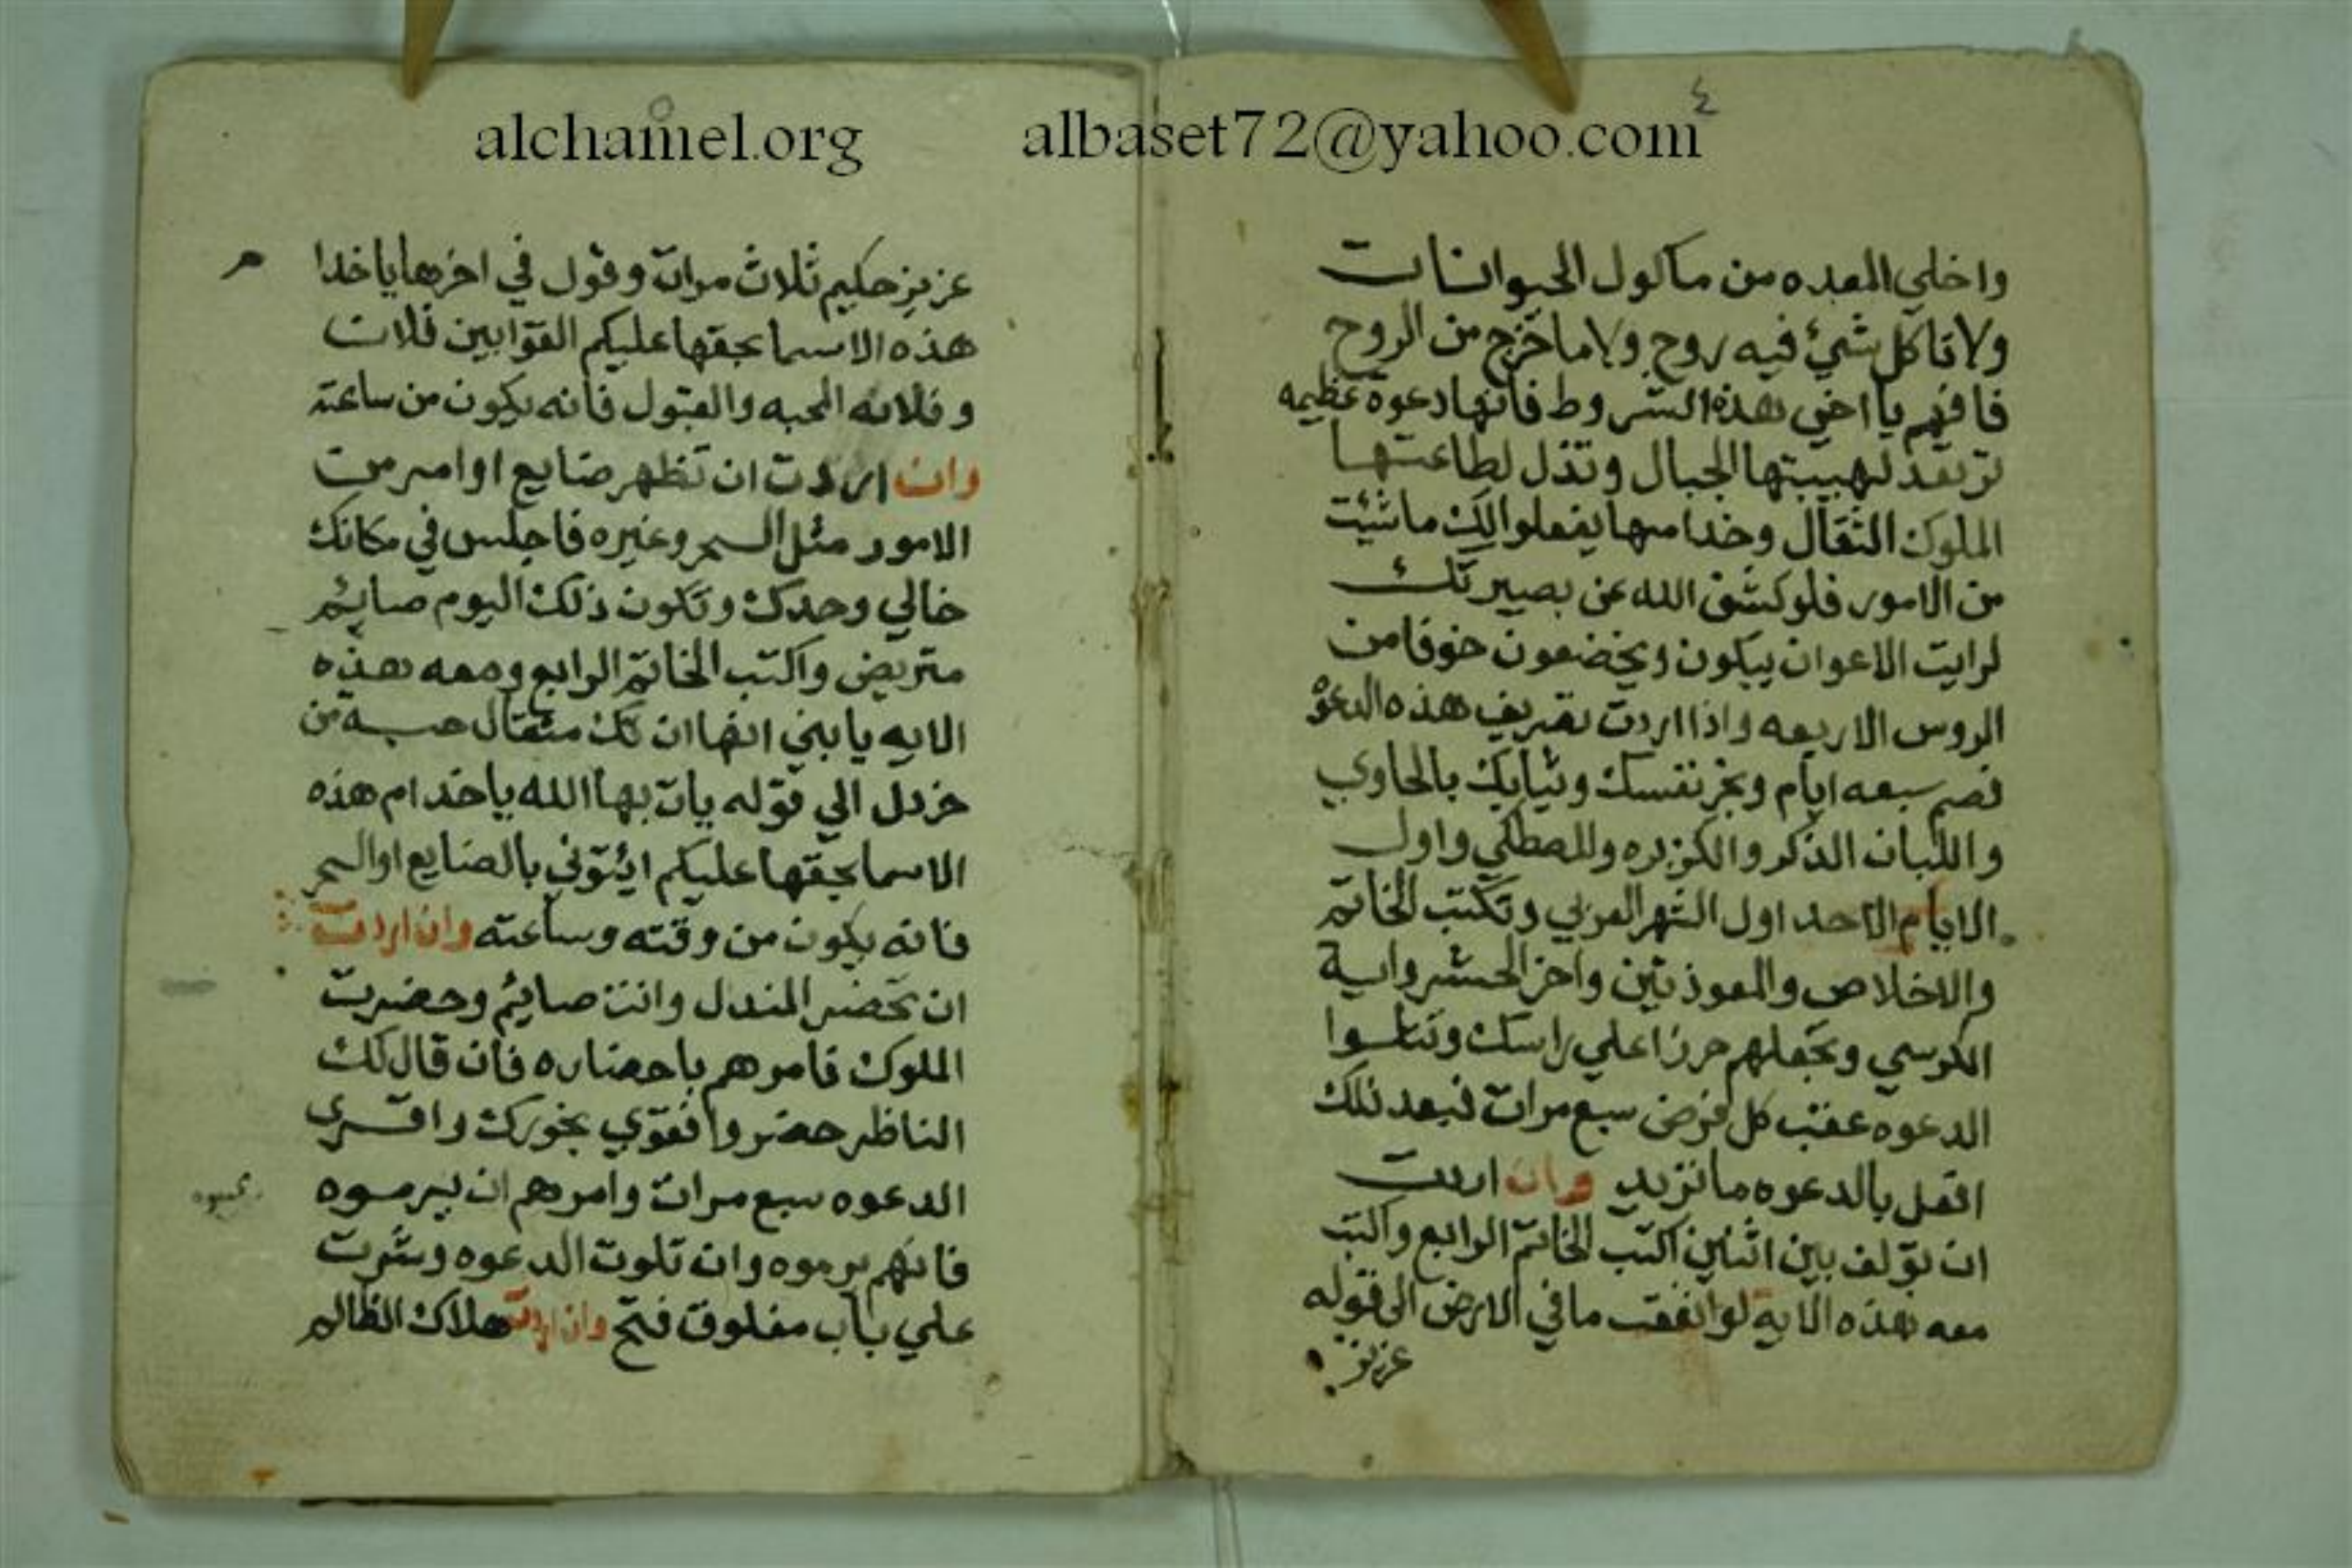 alchamel.org albaset72@yahoo.com
٤
واخلي المعده من ماكول الحيوانات
ولا تاكل شيء فيه روح ولا ما خرج من الروح
فافهم يا اخي هذه الشروط فانها دعوة عظيمه
ترتعد لهيبتها الجبال وتذل لطاعتها
الملوك الثقال وخدامها يفعلوا لك ما شئت
من الامور فلو كشف الله عن بصيرتك
لرايت الاعوان يبكون ويخضعون خوفا من
الروس الاربعه واذا اردت تصريف هذه الدعوة
فصم سبعه ايام وبخر نفسك وثيابك بالحاوي
واللبان الذكر والكزبره والمصطكي واول
الايام الاحد اول الشهر العربي وتكتب الخاتم
والاخلاص والمعوذتين واخر الحشر واية
الكرسي وتجعلهم حرزا علي راسك وتتلوا
الدعوه عقب كل فرض سبع مرات فبعد ذلك
افعل بالدعوه ما تريد وان اردت
ان تولف بين اثنين اكتب الخاتم الرابع واكتب
معه هذه الاية لو انفقت ما في الارض الى قوله
عزيز
٥
عزيز حكيم ثلاث مرات وقول في اخرها يا خدا م
هذه الاسما بحقها عليكم القوا بين فلان
وفلانه المحبه والقبول فانه يكون من ساعته
وان اردت ان تظهر ضايع او امر من
الامور مثل السحر وغيره فاجلس في مكانك
خالي وحدك وتكون ذلك اليوم صايم
متريض واكتب الخاتم الرابع ومعه هذه
الايه يا بني انها ان تك مثقال حبة من
خردل الي قوله يات بها الله يا خدام هذه
الاسما بحقها عليكم ايئتوني بالضايع او السحر
فانه يكون من وقته وساعته وان اردت
ان تحضر المندل وانت صايم وحضرت
الملوك فامرهم باحضاره فان قال لك
الناظر حضروا فقوي بخورك واقري
الدعوه سبع مرات وامرهم ان يرموه
فانهم يرموه وان تلوت الدعوه وشرت
علي باب مغلوق فتح وان اردت هلاك الظالم